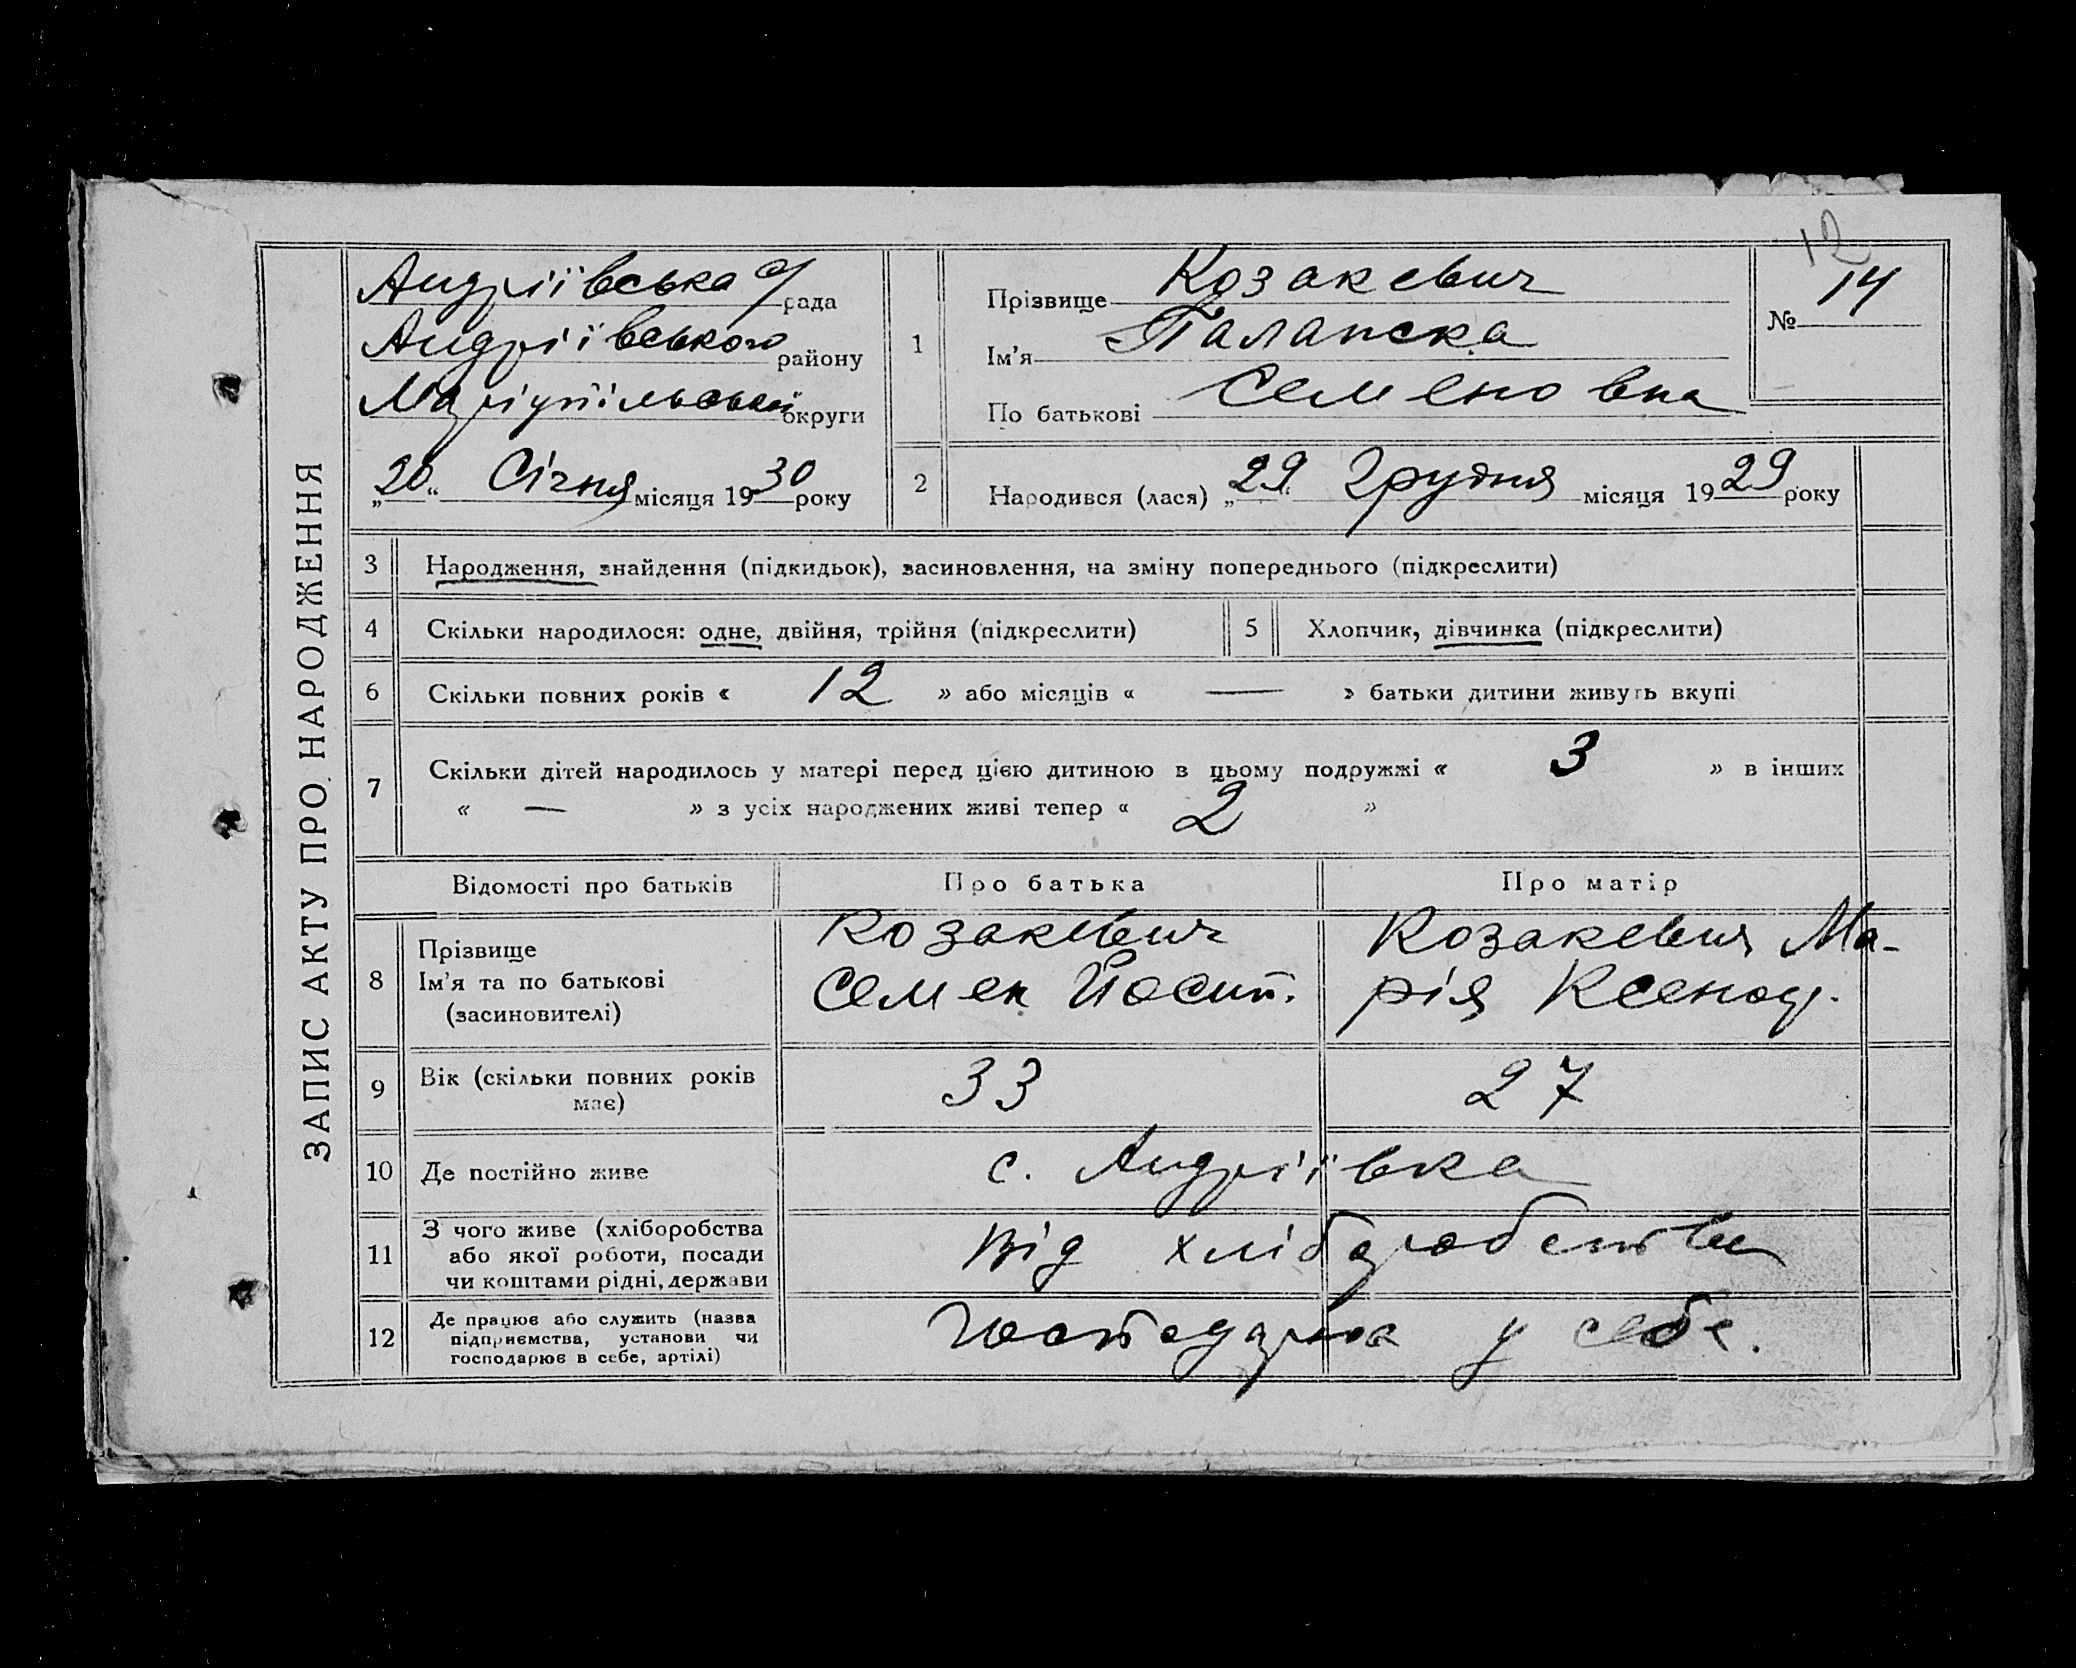 12
ЗАПИС АКТУ ПРО НАРОДЖЕННЯ
Андріївська с/рада
Андріївського району
Маріупільської округи
„20“ Січня місяця 1930 року
1
Прізвище Козакевич
Ім'я
По батькові Семеновна
№ 14
2
Народився (лася) „29“ Грудня місяця 1929 року
3 Народження, знайдення (підкидьок), засиновлення, на зміну попереднього (підкреслити)
4 Скільки народилося: одне, двійня, трійня (підкреслити)
5 Хлопчик, дівчинка (підкреслити)
6 Скільки повних років « 12 » або місяців « — » батьки дитини живуть вкупі
7 Скільки дітей народилось у матері перед цією дитиною в цьому подружжі « 3 » в інших
« — » з усіх народжених живі тепер « 2 »
Відомості про батьків Про батька Про матір
8 Прізвище
Ім'я та по батькові
(засиновителі)
Козакевич
Семен Йосип.
Козакевич Ма-
рія
9 Вік (скільки повних років
має)
33 27
10 Де постійно живе с. Андріївка
11 З чого живе (хліборобства
або якої роботи, посади
чи коштами рідні, держави
від хліборобства
12 Де працює або служить (назва
підприємства, установи чи
господарює в себе, артілі)
у себе.